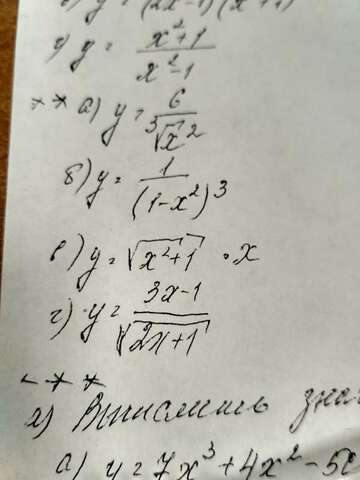 y = (2x-1)(x³+1)
г) y = x²+1 / x²-1
** а) y = 6 / ³√x²
б) y = 1 / (1-x²)³
в) y = √x²+1 · x
г) y = 3x-1 / √2x+1
***
2) Вычислить
а) y = 7x³+4x²-5x